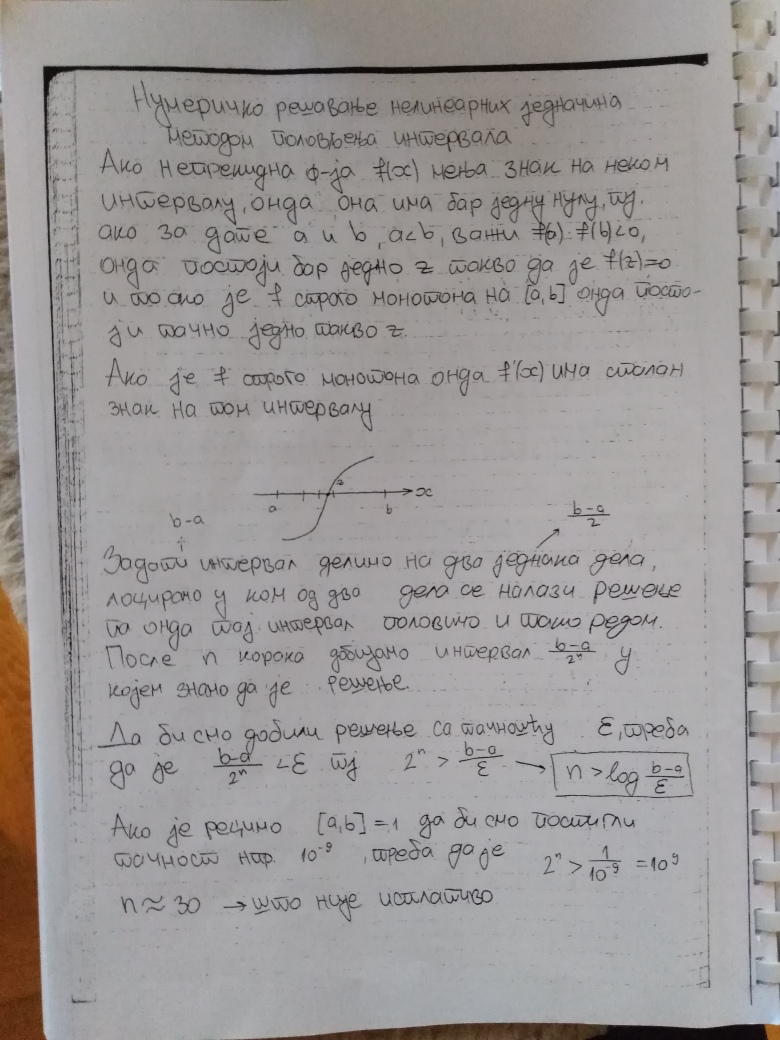 Нумеричко решавање нелинеарних једначина
методом половљења интервала
Ако непрекидна ф-ја f(x) мења знак на неком
интервалу, онда она има бар једну нулу, тј.
ако за дате a и b, a<b, важи f(a)·f(b)<0,
онда постоји бар једно z такво да је f(z)=0
и то ако је f строго монотона на [a,b] онда посто-
ји тачно једно такво z.
Ако је f строго монотона онда f'(x) има сталан
знак на том интервалу
a z b x
b-a
(b-a)/2
Задати интервал делимо на два једнака дела,
лоцирамо у ком од два дела се налази решење
па онда тај интервал половимо и тако редом.
После n корака добијамо интервал (b-a)/2ⁿ у
којем знамо да је решење.
Да би смо добили решење са тачношћу ε, треба
да је (b-a)/2ⁿ < ε тј 2ⁿ > (b-a)/ε → n > log (b-a)/ε
Ако је рецимо [a,b]=1 да би смо постигли
тачност нпр. 10⁻⁹, треба да је 2ⁿ > 1/10⁻⁹ = 10⁹
n ≈ 30 → што није исплативо